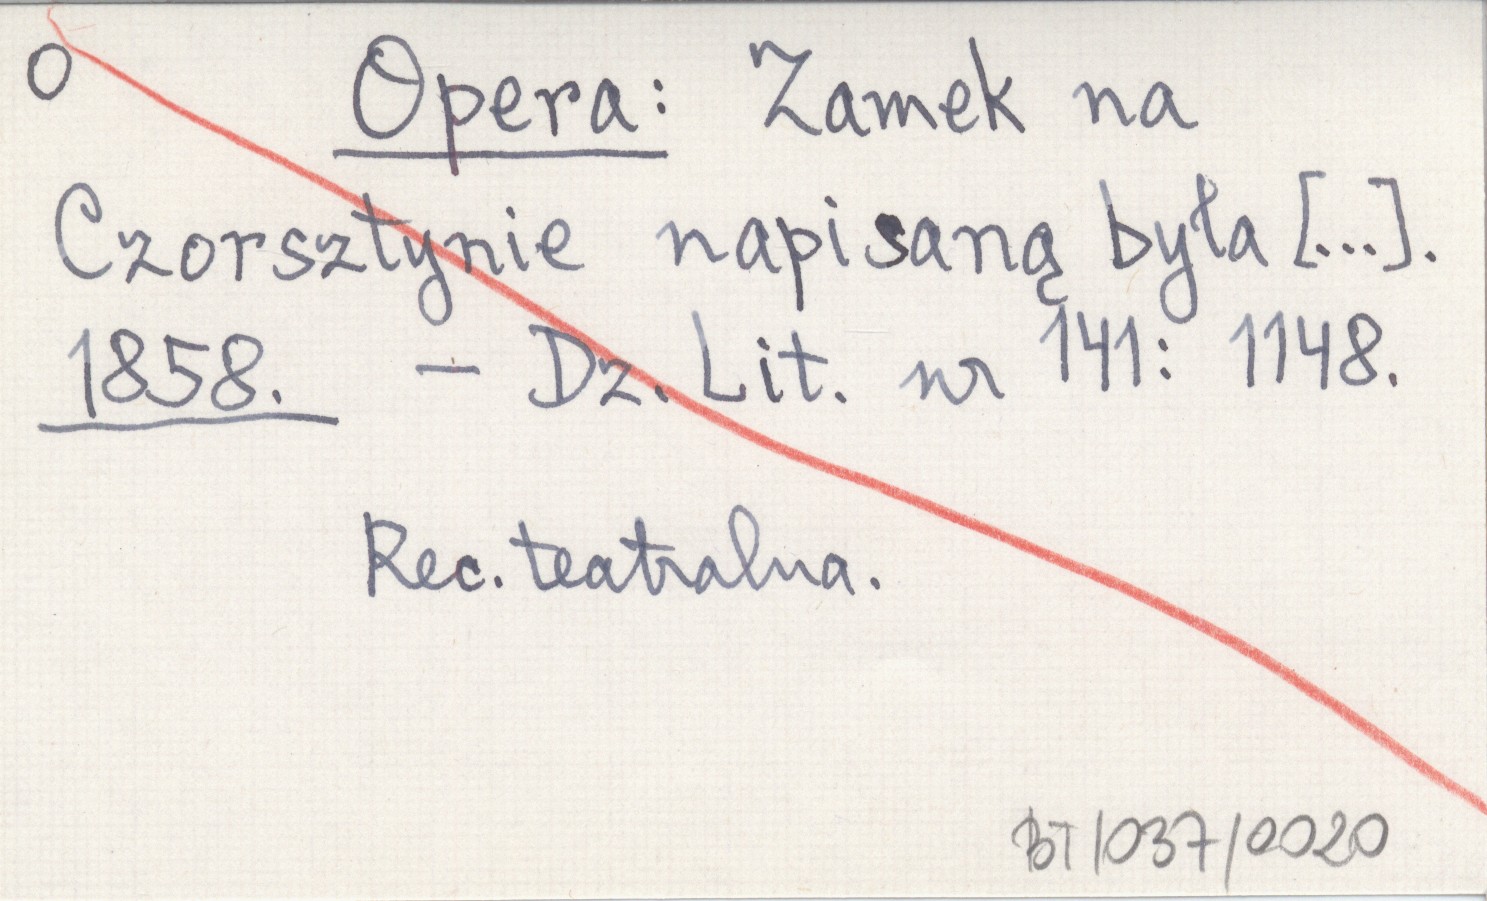 O
Opera: Zamek na
Czorsztynie napisaną była [...].
1858. – Dz. Lit. nr 141: 1148.
Rec. teatralna.
BT/037/0020